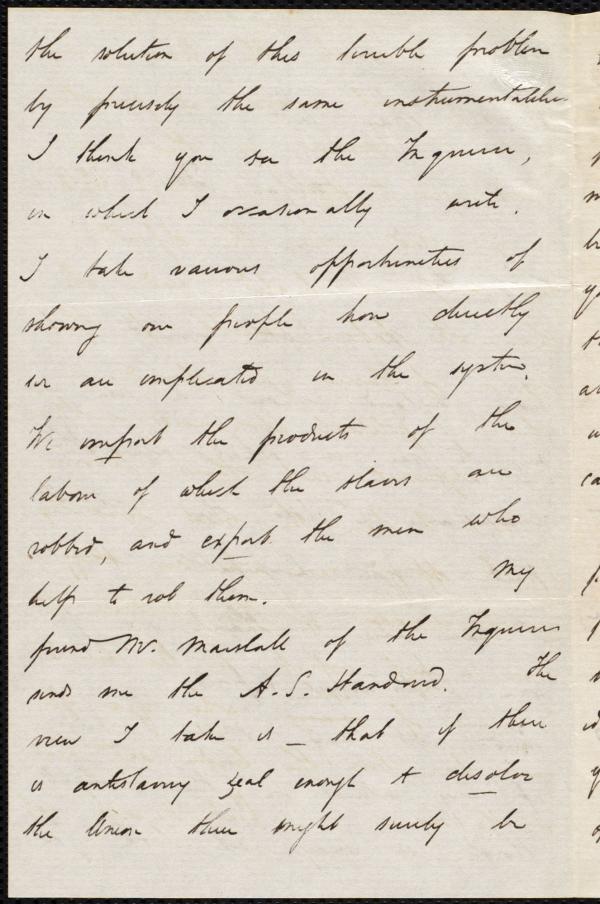 the solution of this terrible problem
by precisely the same instrumentalities
I think you see the Inquirer,
in which I occasionally write.
I take various opportunities of
showing our people how directly
we are implicated in the system.
We import the products of the
labour of which the slaves are
robbed, and export the men who
help to rob them. My
friend Mr. Marshall of the Inquirer
sends me the A. S. Standard. The
view I take is _ that if there
is antislavery zeal enough to dissolve
the Union there might surely be